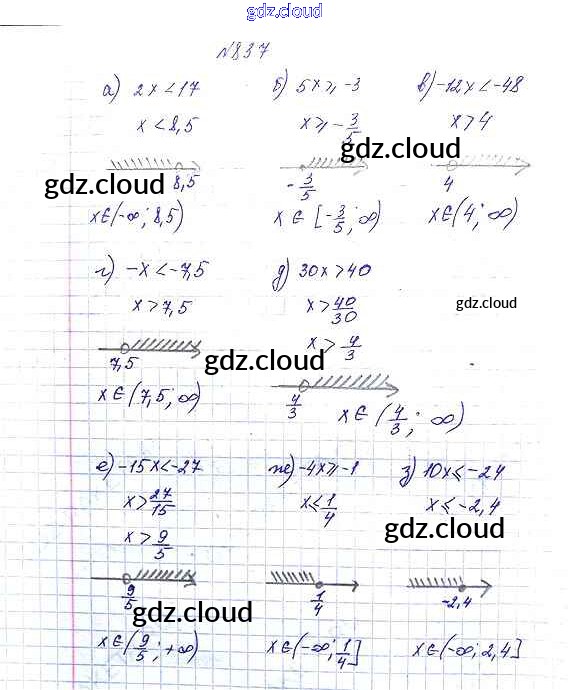 gdz.cloud
№837
а) 2x<17
x<8,5
8,5
x∈(-∞; 8,5)
б) 5x⩾-3
x⩾-3/5
-3/5
x∈[-3/5; ∞)
в) -12x<-48
x>4
4
x∈(4; ∞)
gdz.cloud
gdz.cloud
г) -x<-7,5
x>7,5
7,5
x∈(7,5; ∞)
д) 30x>40
x>40/30
x>4/3
4/3
x∈(4/3; ∞)
gdz.cloud
gdz.cloud
е) -15x<-27
x>27/15
x>9/5
9/5
x∈(9/5; +∞)
ж) -4x⩾-1
x⩽1/4
1/4
x∈(-∞; 1/4]
з) 10x⩽-24
x⩽-2,4
-2,4
x∈(-∞; 2,4]
gdz.cloud
gdz.cloud